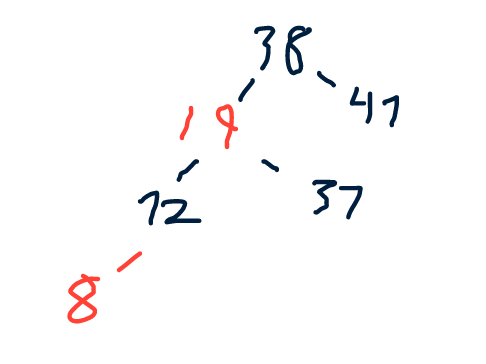 38
19 41
12 37
8